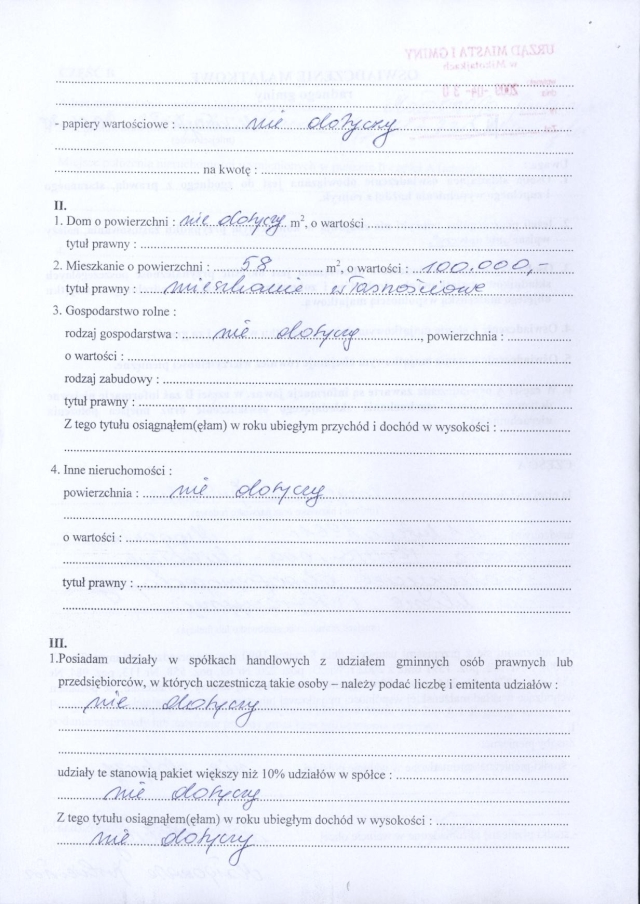 URZĄD MIASTA I GMINY
w Mikołajkach
- papiery wartościowe : nie dotyczy
na kwotę :
II.
1. Dom o powierzchni : nie dotyczy m², o wartości
tytuł prawny :
2. Mieszkanie o powierzchni : 58 m², o wartości : 100.000,-
tytuł prawny : mieszkanie własnościowe
3. Gospodarstwo rolne :
rodzaj gospodarstwa : nie dotyczy, powierzchnia :
o wartości :
rodzaj zabudowy :
tytuł prawny :
Z tego tytułu osiągnąłem(ęłam) w roku ubiegłym przychód i dochód w wysokości :
4. Inne nieruchomości :
powierzchnia : nie dotyczy
o wartości :
tytuł prawny :
III.
1.Posiadam udziały w spółkach handlowych z udziałem gminnych osób prawnych lub
przedsiębiorców, w których uczestniczą takie osoby – należy podać liczbę i emitenta udziałów :
nie dotyczy
udziały te stanowią pakiet większy niż 10% udziałów w spółce :
nie dotyczy
Z tego tytułu osiągnąłem(ęłam) w roku ubiegłym dochód w wysokości :
nie dotyczy